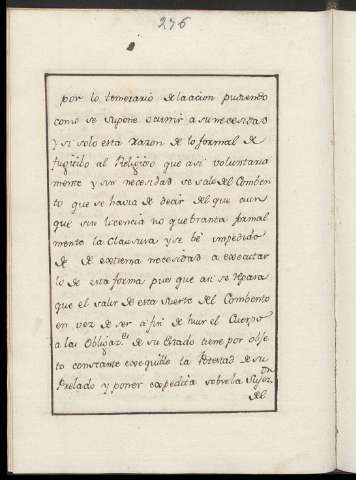 276
por lo temerario de la acion pudiendo
como se supone ocurrir a su necesidad
y si solo esta razon de lo formal de
fugitibo al Religioso que asi voluntaria
mente y sin necesidad se sale del Comben
to que se havia de decir del que aun
que sin licencia no quebranta formal
mente la Clausura y se bé impedido
de de extrema necesidad a executar
lo de esta forma pues que asi se repara
que el salir de esta suerte del Combento
en vez de ser a fin de huir el Cuerpo
a las Obligaz.es de su Estado tiene por obje
to constante el de la Potestad de su
Prelado y poner expedita sobre la Sujez.on
del